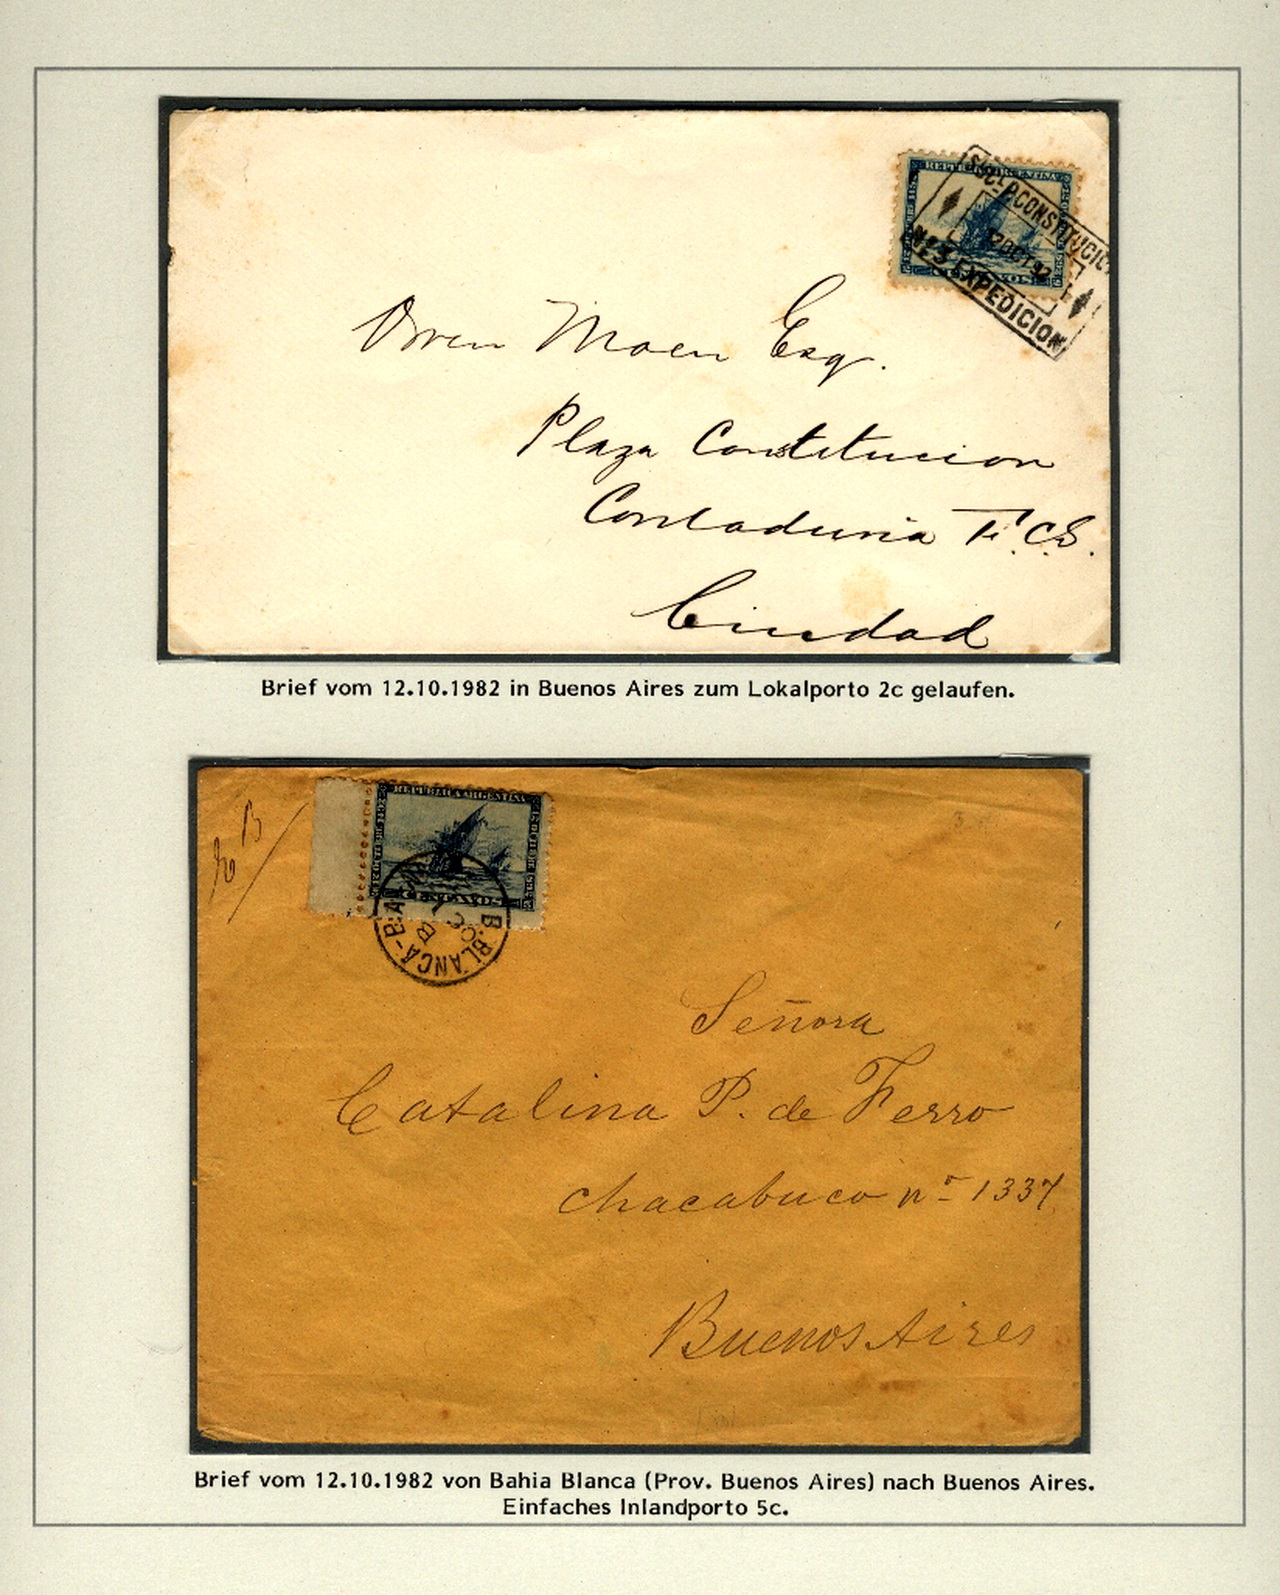 REPUBLICA ARGENTINA
SUC. P. CONSTITUCIO
12 OCT 92
Nº 3 EXPEDICION
Owen Moen Esq.
Plaza Constitucion
Contaduria F.C.S.
Ciudad
Brief vom 12.10.1982 in Buenos Aires zum Lokalporto 2c gelaufen.
REPUBLICA ARGENTINA
12 OCTUBRE 1492
12 OCTUBRE 1892
B. BLANCA - B. A
Señora
Catalina P. de Ferro
Chacabuco nº 1337
Buenos Aires
Brief vom 12.10.1982 von Bahia Blanca (Prov. Buenos Aires) nach Buenos Aires.
Einfaches Inlandporto 5c.